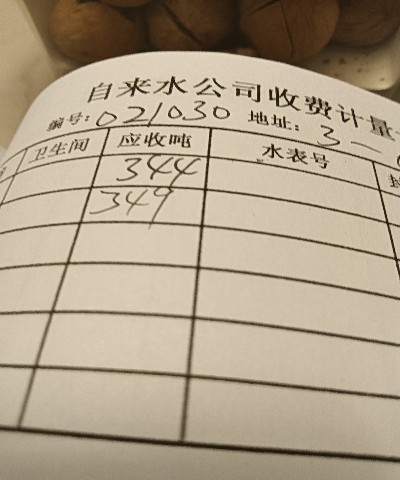 自来水公司收费计量
编号: 021030 地址: 3-
卫生间 应收吨 水表号
344
349